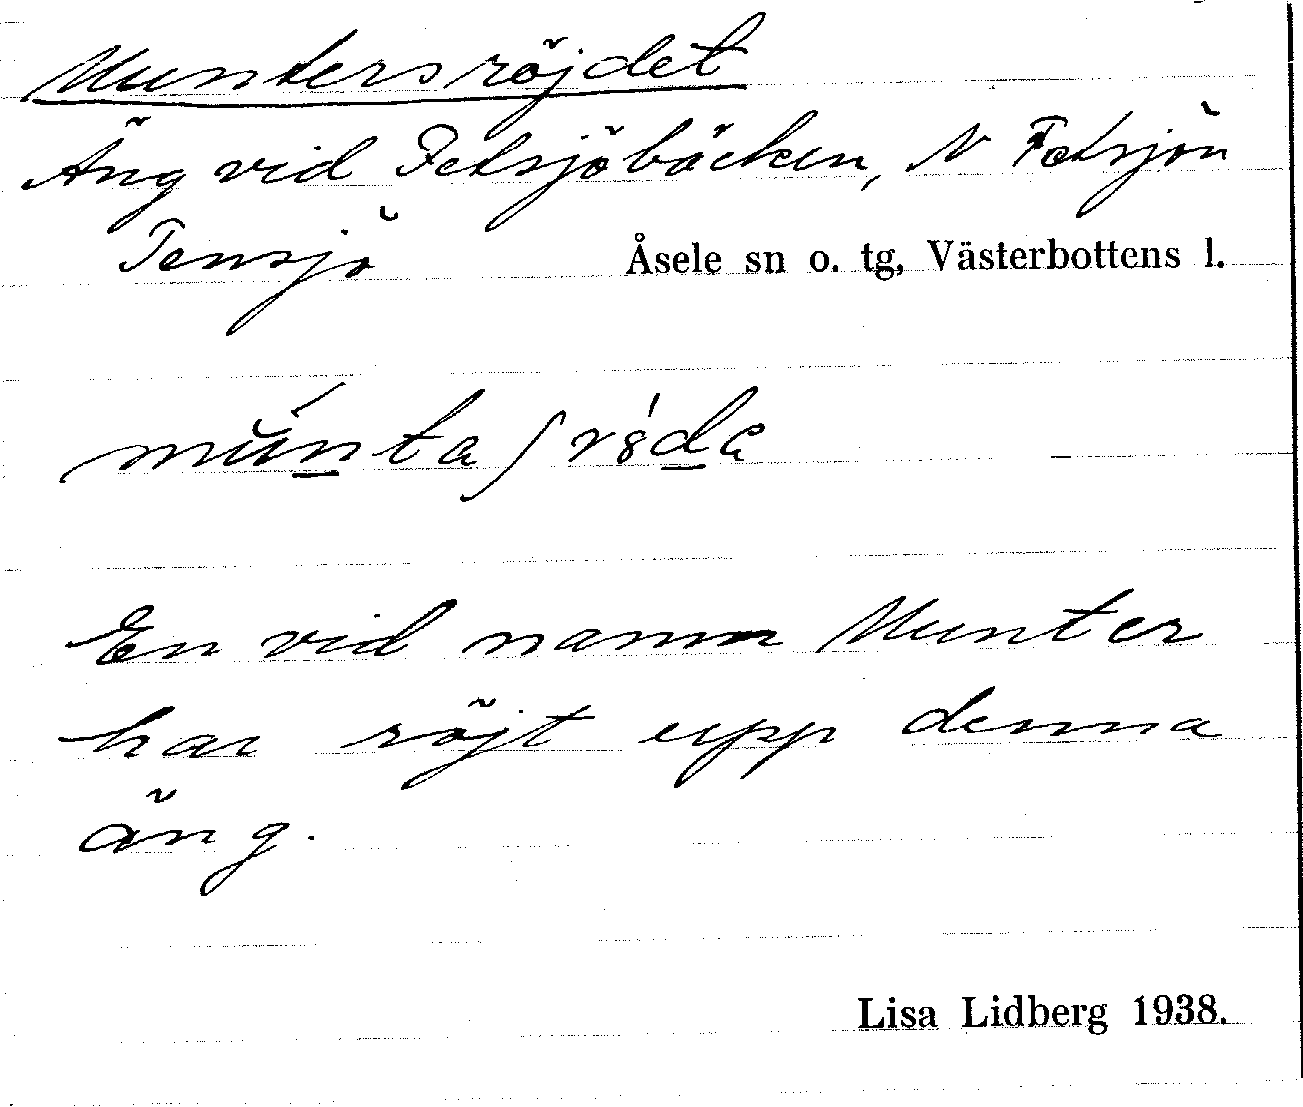 Muntersröjdet
Äng vid Fetsjöbäcken, N Fetsjön
Tensjö Åsele sn o. tg, Västerbottens l.
En vid namn Munter
har röjt upp denna
äng.
Lisa Lidberg 1938.